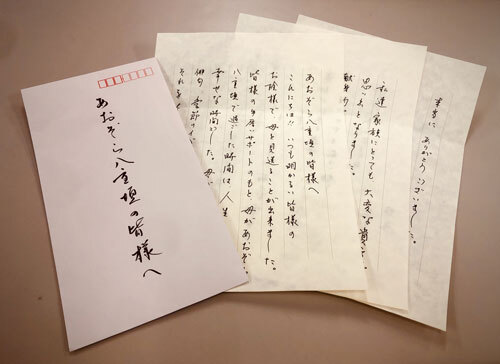 あおぞら八重垣の皆様へ
あおぞら八重垣の皆様へ
こんにちは!! いつも明かるい皆様の
お陰様で 母を見送ることが出来ました。
皆様の手厚いサポートのもと、母があおぞら
八重垣で過ごした時間は、人生
幸せな時間
俳句、季節の
それ
私達 家族にとっても 大変な
思い となりました。
本当に ありがとうございました。